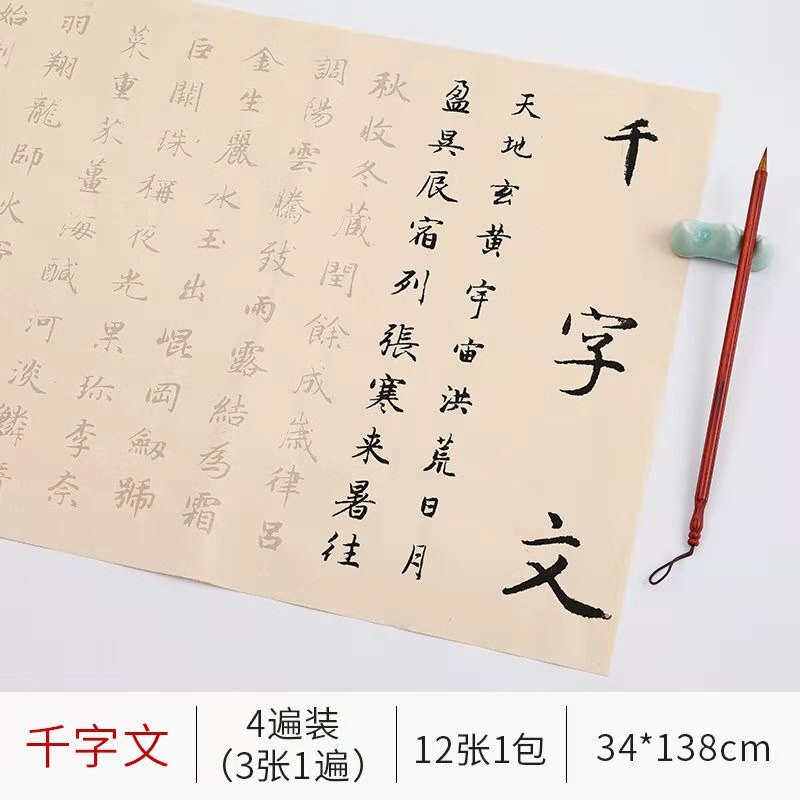 千字文
天地玄黄宇宙洪荒日月
盈昃辰宿列張寒来暑往
秋收冬蔵閏餘成歲律呂
調陽雲騰致雨露結為霜
金生麗水玉出崐岡劒號
巨闕珠稱夜光果珎李柰
菜重芥薑海鹹河淡鱗
羽翔龍師火
始制
千字文
4遍装
（3张1遍）
12张1包
34*138cm